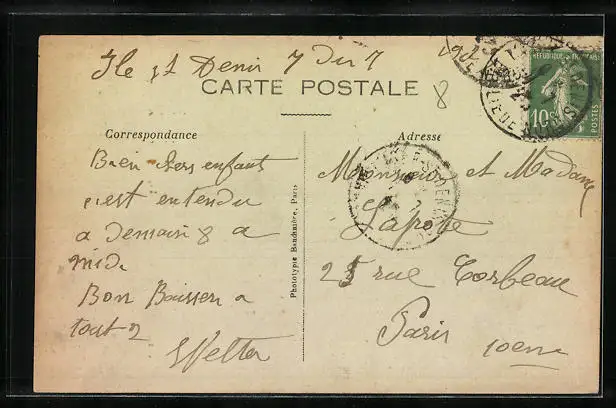 Ile St Denis 7 Dur 7
CARTE POSTALE
8
REPUBLIQUE FRANÇAISE
10c
POSTES
Correspondance
Adresse
Bien chers enfants
c'est entendu
a Demain 8 a
midi
Bon Baisser a
tout 2
Welter
Phototypie Baudinière, Paris
Monsieur et Madame
Laporte
25 rue Corbeau
Paris 10em